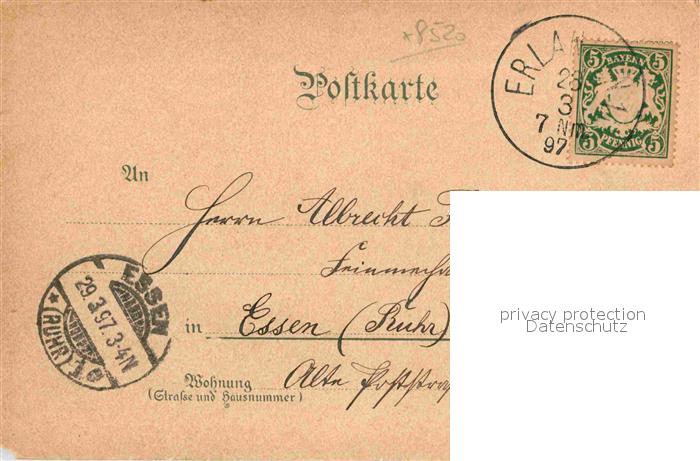 +8520
Postkarte
ERLAN
28
3
7 NM
97
5 BAYERN 5
5 PFENNIG 5
An
Herrn Albrecht F
Feinmecha
in Essen (Ruhr)
Alte Poststra
Wohnung
(Straße und Hausnummer)
ESSEN
29.3.97.3-4N
*(RUHR)
privacy protection
Datenschutz